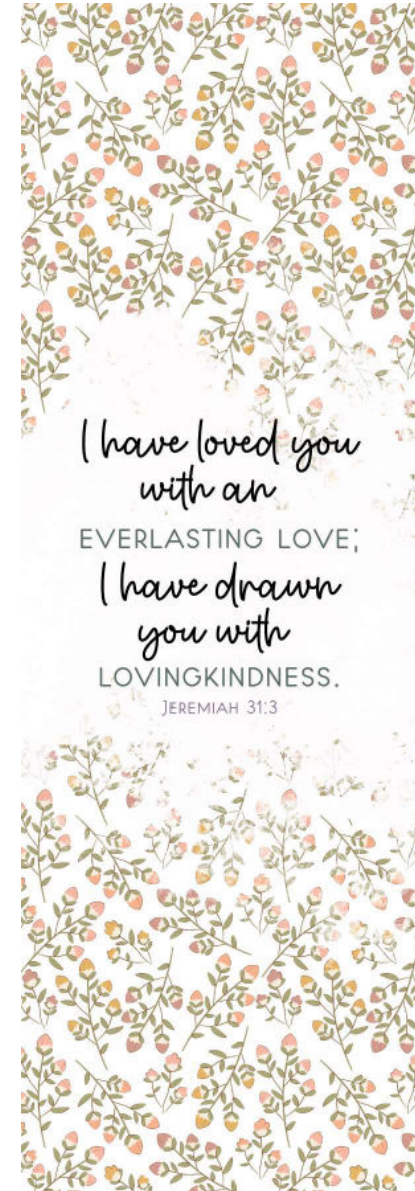 I have loved you
with an
EVERLASTING LOVE;
I have drawn
you with
LOVINGKINDNESS.
JEREMIAH 31:3